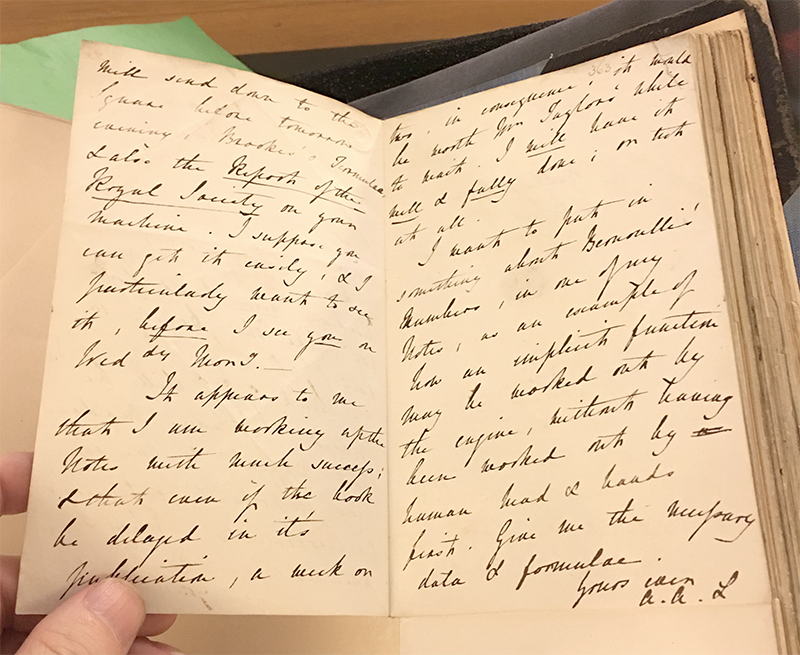 will send down to the
Square before tomorrow
evening, Brooke's Formulae,
& also the Report of the
Royal Society on your
machine. I suppose you
can get it easily, & I
particularly want to see
it, before I see you on
Wed dy Morng.—
It appears to me
that I am working up the
Notes with much success;
& that even if the book
be delayed in it's
publication, a week or
two, in consequence, it would
be worth Mr Taylor's while
to wait. I will have it
well & fully done; or not
at all.
I want to put in
something about Bernoulli's
Numbers, in one of my
Notes, as an example of
how an implicit function
may be worked out by
the engine, without having
been worked out by
human head & hands
first. Give me the necessary
data & formulae.
Yours ever
A.A.L
363